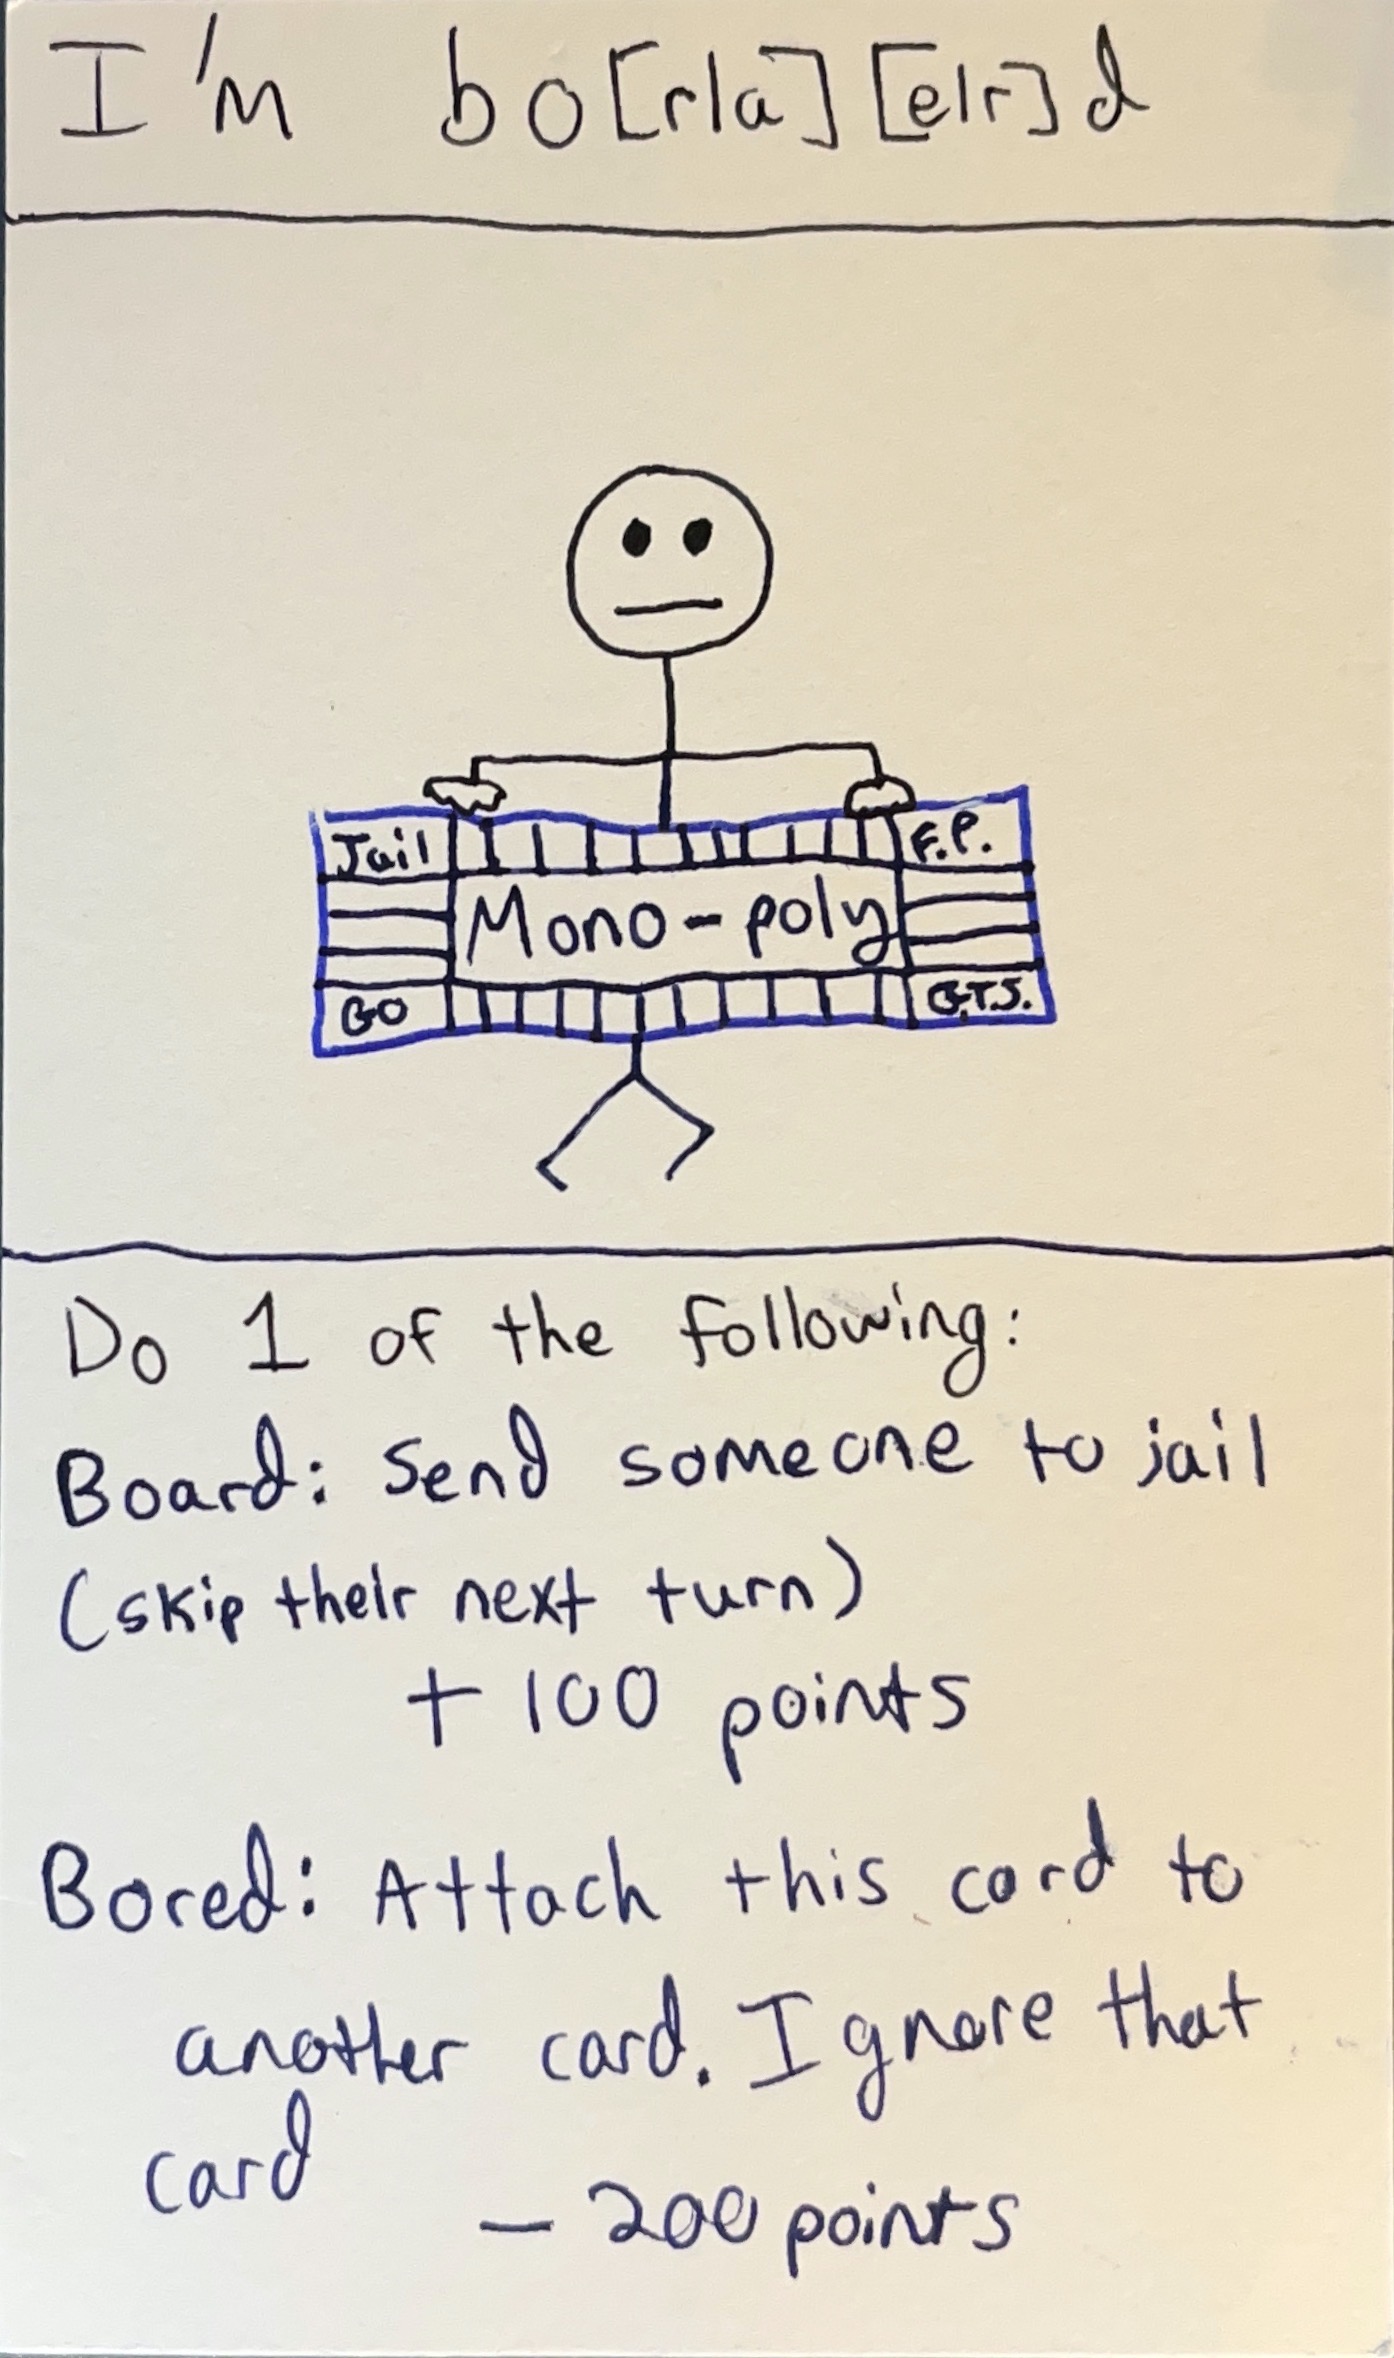 I'm bo[r|a][e|r]d
Jail F.P.
Mono-poly
GO G.T.J.
Do 1 of the following:
Board: Send someone to jail
(skip their next turn)
+ 100 points
Bored: Attach this card to
another card. Ignore that
card
- 200 points